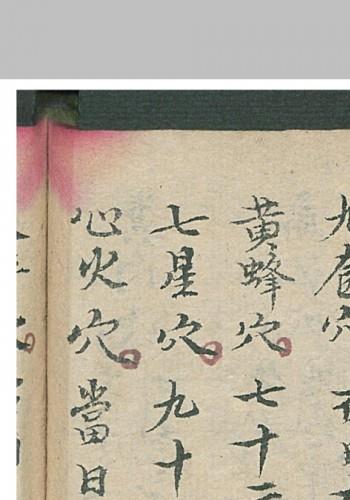 穴
黃蜂穴七十
七星穴九十
心火穴當日